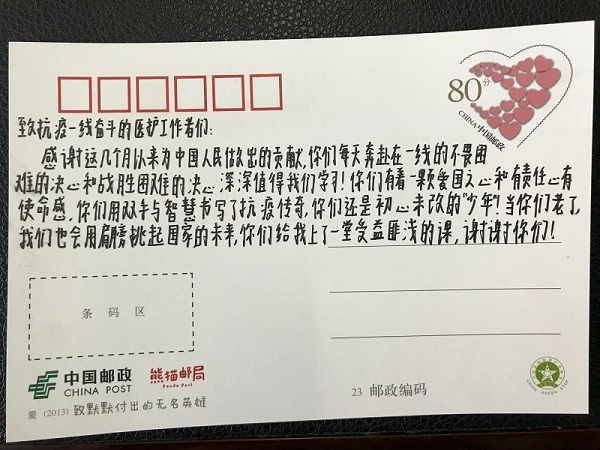 80分
CHINA 中国邮政
至致抗疫一线奋斗的医护工作者们：
感谢这几个月以来为中国人民做出的贡献，你们每天奔赴在一线的不畏困
难的决心和战胜困难的决心深深值得我们学习！你们有着一颗爱国之心和有责任心有
使命感，你们用双手与智慧书写了抗疫传奇，你们还是初心未改的“少年”！当你们老了，
我们也会用肩膀挑起国家的未来，你们给我上了一堂受益匪浅的课，谢谢你们！
条 码 区
中国邮政
CHINA POST
熊猫邮局
Panda Post
爱 (2013) 致默默付出的无名英雄
23 邮政编码